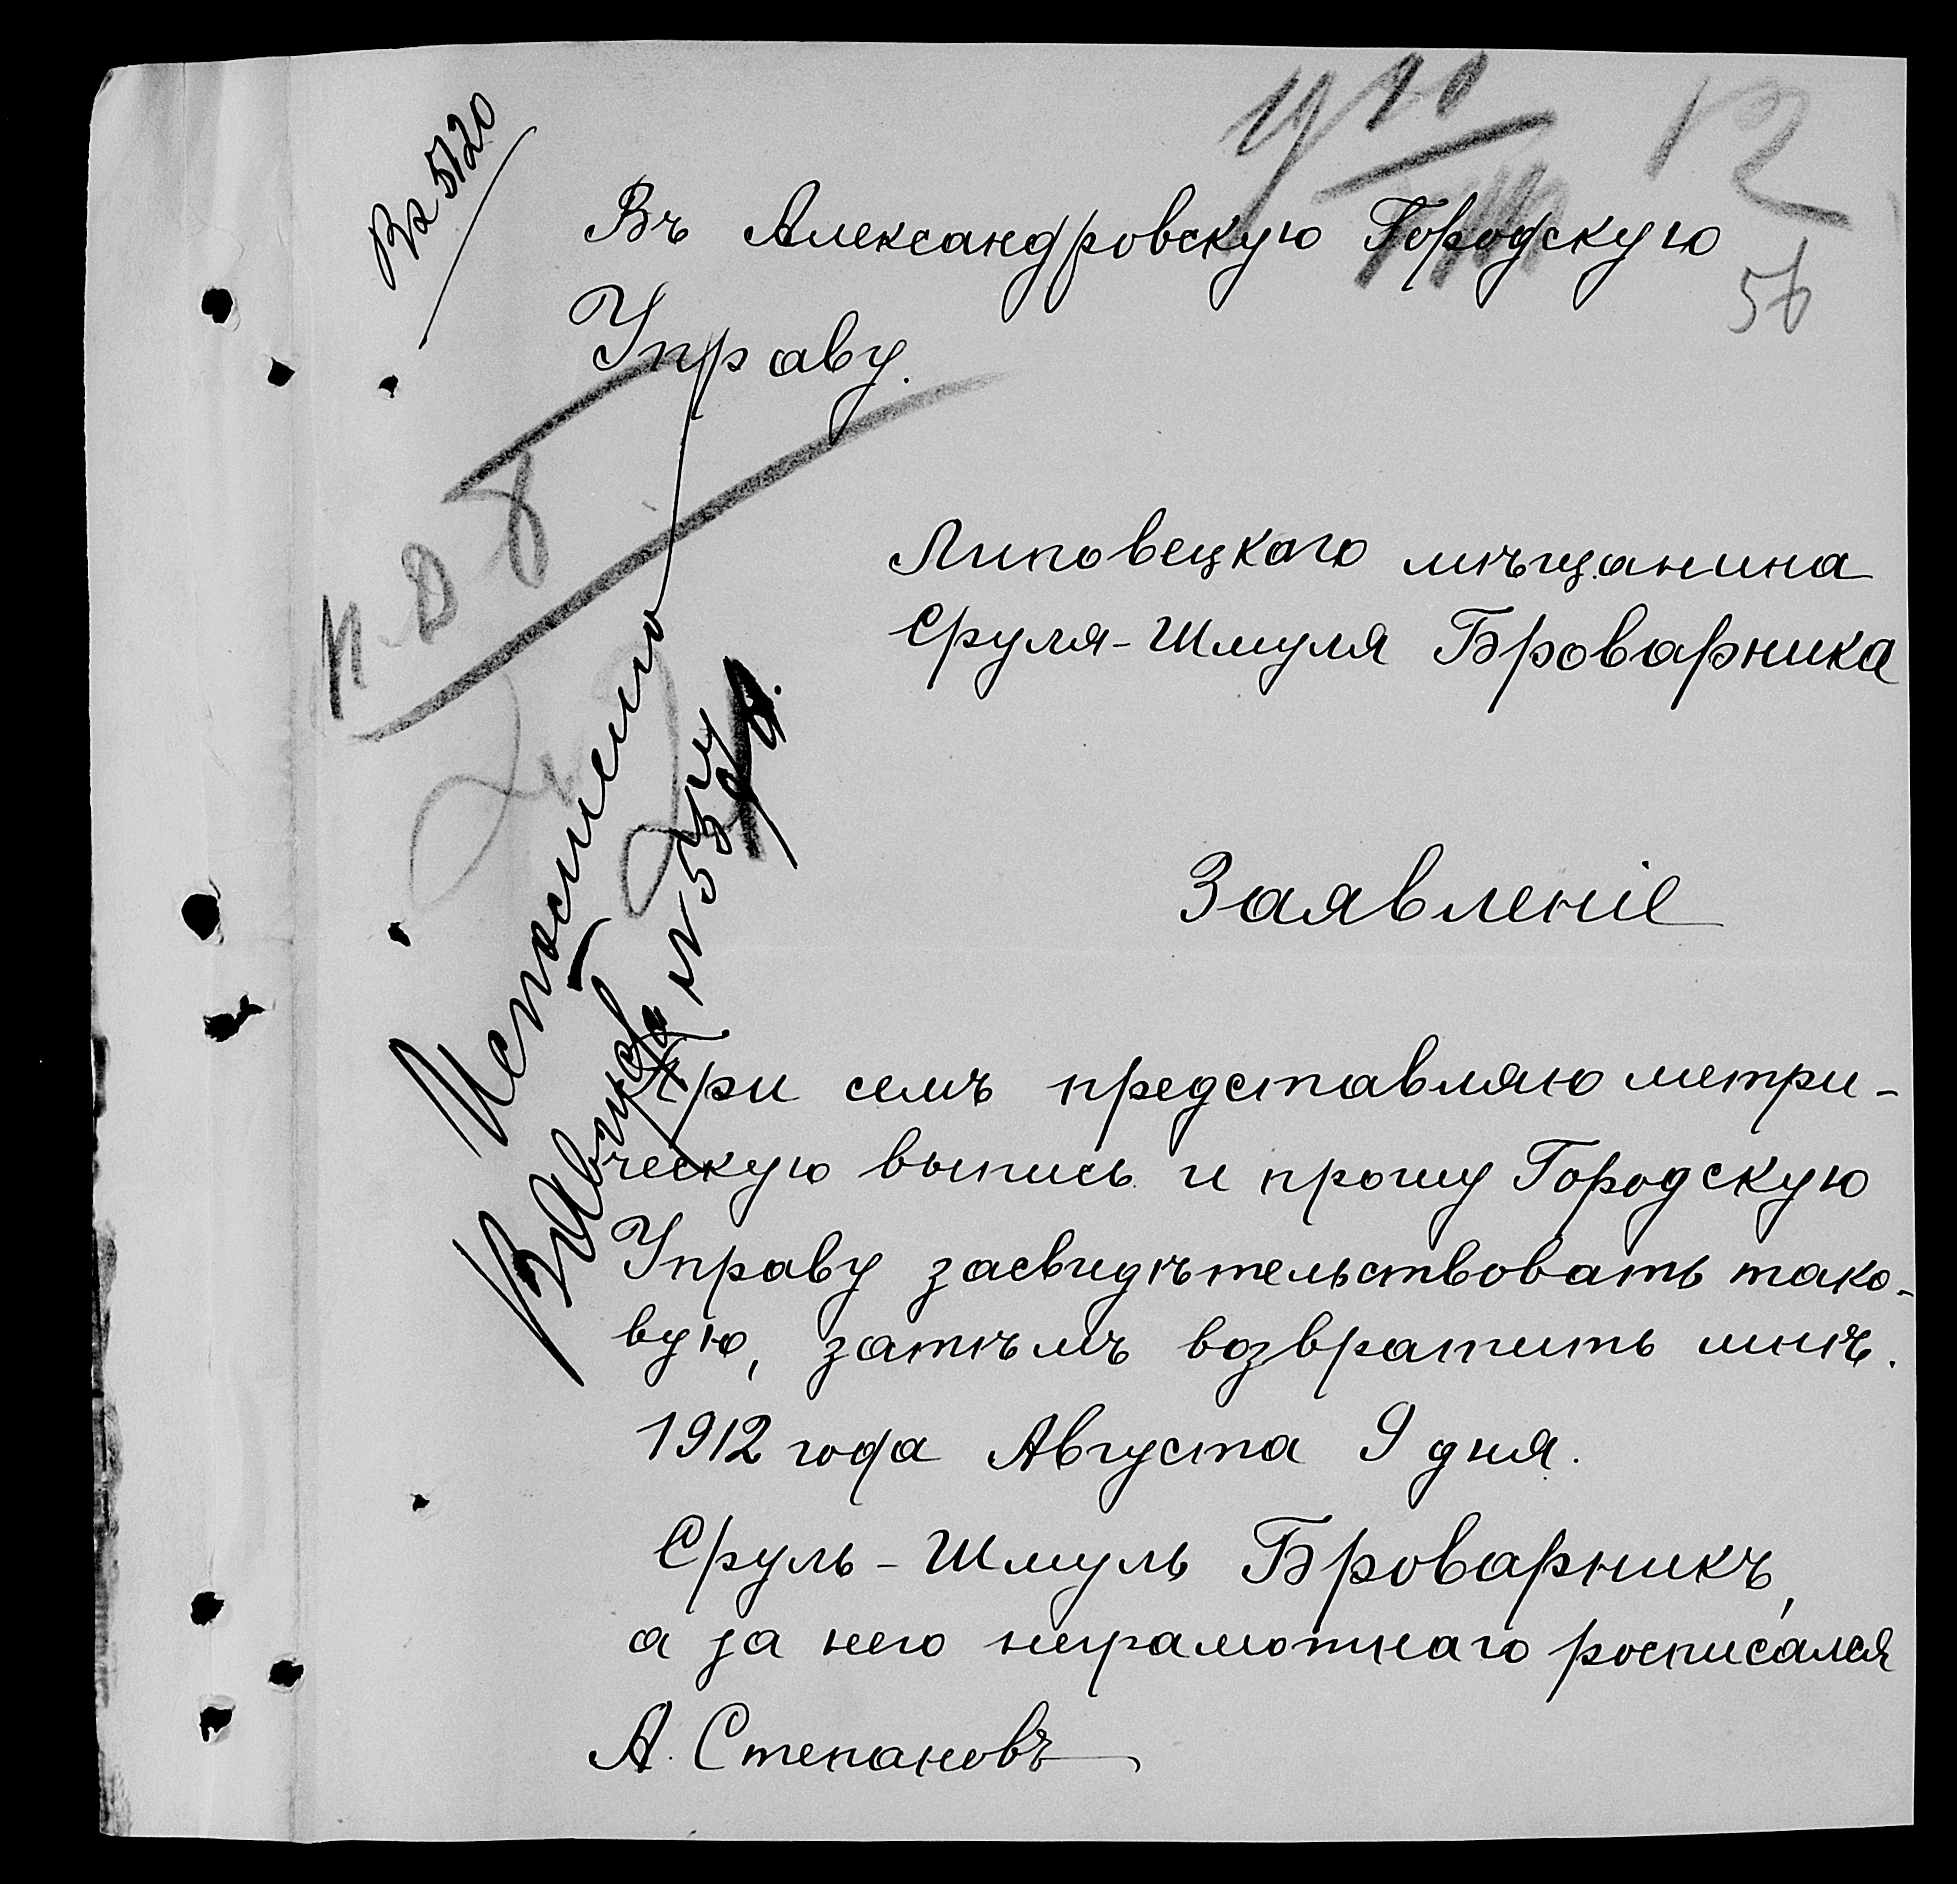 Вх 5120
12
56
Въ Александровскую Городскую
Управу.
Липовецкаго мѣщанина
Сруля-Шмуля Броварника
Исполнено
Заявленіе
При семъ представляю метри-
ческую выпись и прошу Городскую
Управу засвидѣтельствовать тако-
вую, затѣмъ возвратить мнѣ.
1912 года Августа 9 дня.
Сруль-Шмуль Броварникъ,
а за него неграмотнаго росписался
А. Степановъ